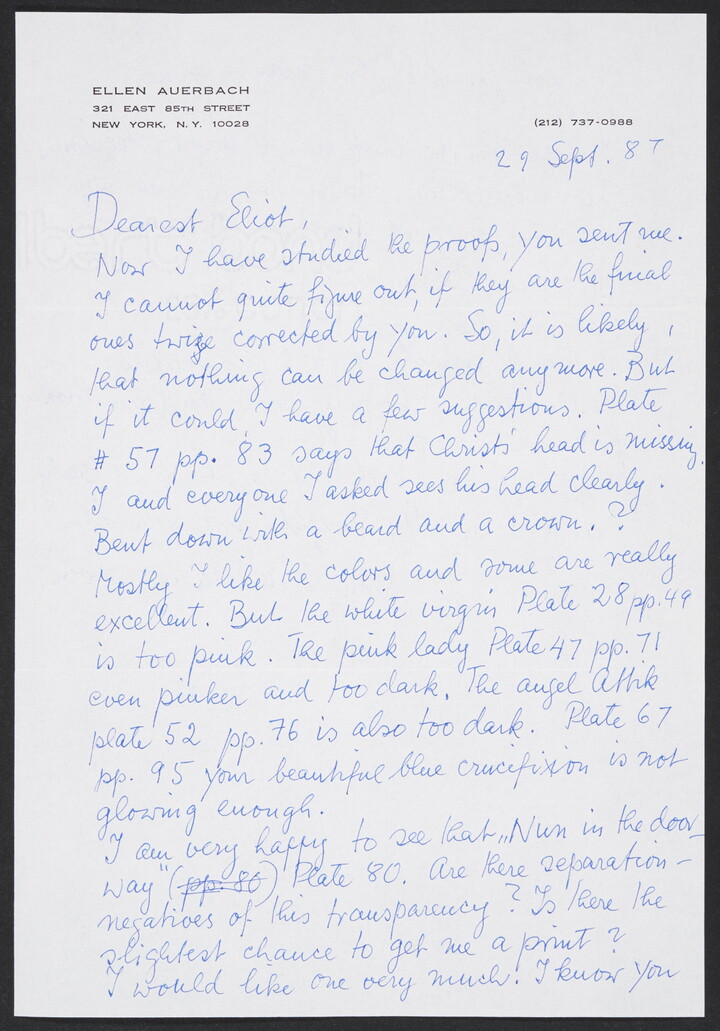 ELLEN AUERBACH
321 EAST 85TH STREET
NEW YORK, N.Y. 10028
(212) 737-0988
29 Sept. 87
Dearest Eliot,
Now I have studied the proofs, you sent me.
I cannot quite figure out, if they are the final
ones twize corrected by you. So, it is likely,
that nothing can be changed anymore. But
if it could, I have a few suggestions. Plate
# 57 pp. 83 says that Christs' head is missing.
I and everyone I asked sees his head clearly.
Bent down with a beard and a crown. ?
Mostly I like the colors and some are really
excellent. But the white virgin Plate 28 pp. 49
is too pink. The pink lady Plate 47 pp. 71
even pinker and too dark. The angel Attik
plate 52 pp. 76 is also too dark. Plate 67
pp. 95 your beautiful blue crucifixion is not
glowing enough.
I am very happy to see that „Nun in the door-
way" (pp. 80) Plate 80. Are there separation-
negatives of this transparency? Is there the
slightest chance to get me a print?
I would like one very much. I know you